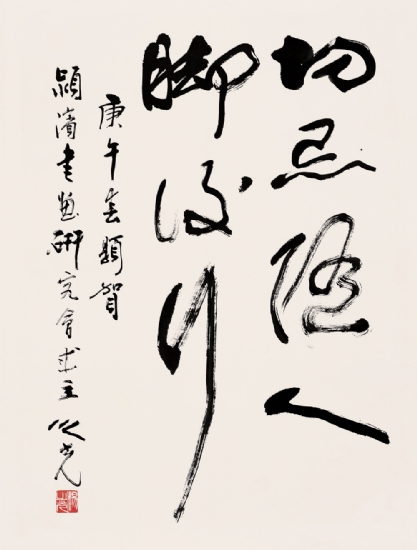 切忌随人
脚后行
庚午春题贺
颍滨书画研究会成立 以光